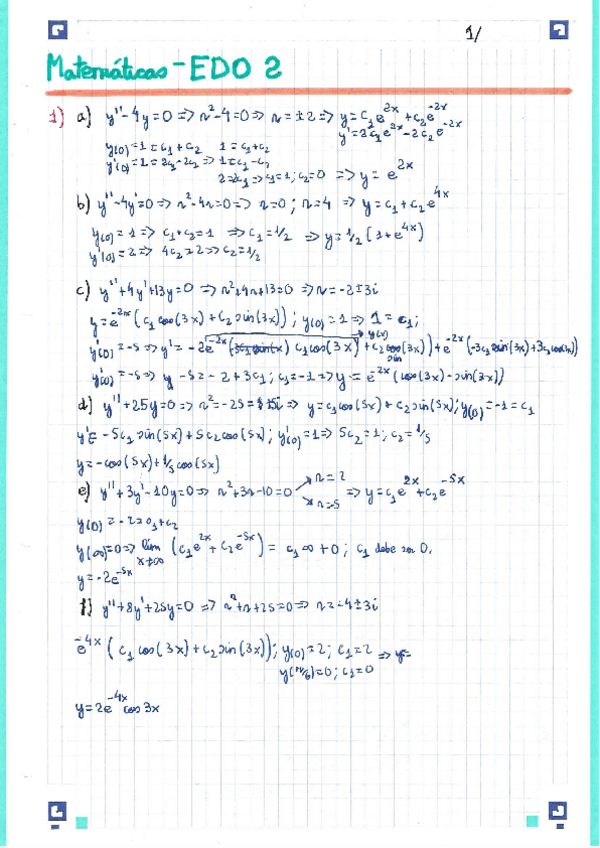 1/
Matemáticas - EDO 2
1) a) y'' - 4y = 0 => r² - 4 = 0 => r = ±2 => y = c₁e^2x + c₂e^-2x
y' = 2c₁e^2x - 2c₂e^-2x
y(0) = 1 = c₁ + c₂ 1 = c₁ + c₂
y'(0) = 1 = 2c₁ - 2c₂ => 1 = c₁ - c₂
2 = 2c₁ => c₁ = 1; c₂ = 0 => y = e^2x
b) y'' - 4y' = 0 => r² - 4r = 0 => r = 0; r = 4 => y = c₁ + c₂e^4x
y(0) = 1 => c₁ + c₂ = 1 => c₁ = 1/2 => y = 1/2 (1 + e^4x)
y'(0) = 2 => 4c₂ = 2 => c₂ = 1/2
c) y'' + 4y' + 13y = 0 => r² + 4r + 13 = 0 => r = -2 ± 3i
y = e^-2x (c₁ cos(3x) + c₂ sin(3x)); y(0) = 1 => 1 = c₁;
y'(0) = -5 => y' = -2e^-2x (c₁ cos(3x) + c₂ sin(3x)) + e^-2x (-3c₁ sin(3x) + 3c₂ cos(3x))
y'(0) = -5 => -5 = -2 + 3c₁; c₁ = -1 => y = e^-2x (cos(3x) - sin(3x))
d) y'' + 25y = 0 => r² = -25 = ±5i => y = c₁ cos(5x) + c₂ sin(5x); y(0) = -1 = c₁
y' = -5c₁ sin(5x) + 5c₂ cos(5x); y'(0) = 1 => 5c₂ = 1; c₂ = 1/5
y = -cos(5x) + 1/5 cos(5x)
e) y'' + 3y' - 10y = 0 => r² + 3r - 10 = 0 r = 2 r = -5 => y = c₁e^2x + c₂e^-5x
y(0) = -2 = c₁ + c₂
y(∞) = 0 => lim x→∞ (c₁e^2x + c₂e^-5x) = c₁ ∞ + 0; c₁ debe ser 0.
y = -2e^-5x
f) y'' + 8y' + 25y = 0 => r² + r + 25 = 0 => r = -4 ± 3i
e^-4x (c₁ cos(3x) + c₂ sin(3x)); y(0) = 2; c₁ = 2 => y =
y(π/6) = 0; c₁ = 0
y = 2e^-4x cos 3x